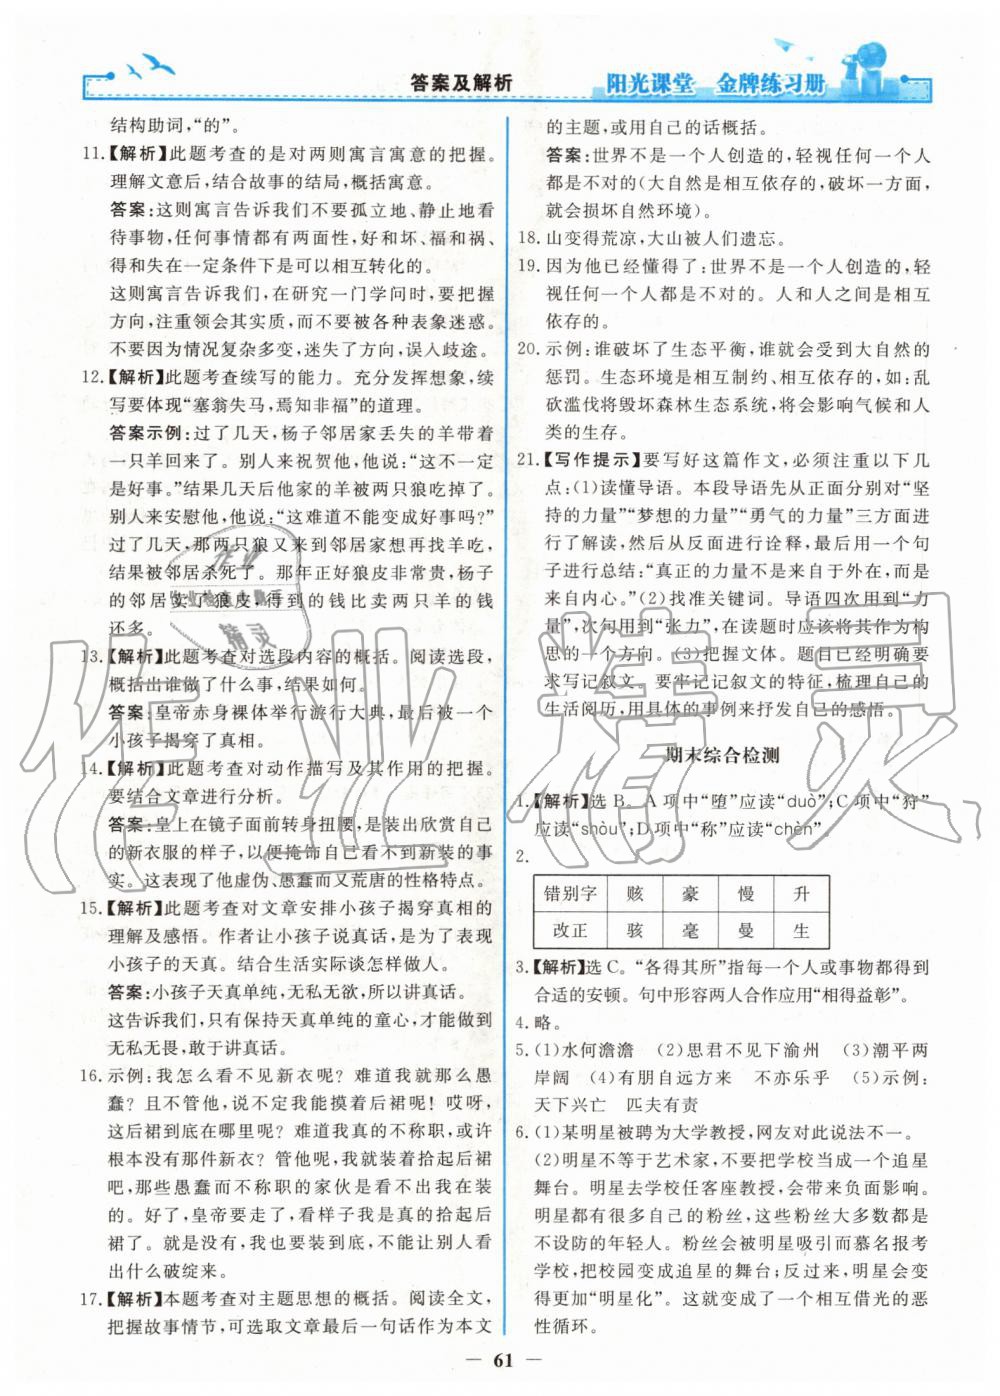 答案及解析
阳光课堂 金牌练习册
结构助词,“的”。
11.【解析】此题考查的是对两则寓言寓意的把握。
理解文意后,结合故事的结局,概括寓意。
答案:这则寓言告诉我们不要孤立地、静止地看
待事物,任何事情都有两面性,好和坏、福和祸、
得和失在一定条件下是可以相互转化的。
这则寓言告诉我们,在研究一门学问时,要把握
方向,注重领会其实质,而不要被各种表象迷惑。
不要因为情况复杂多变,迷失了方向,误入歧途。
12.【解析】此题考查续写的能力。充分发挥想象,续
写要体现“塞翁失马,焉知非福”的道理。
答案示例:过了几天,杨子邻居家丢失的羊带着
一只羊回来了。别人来祝贺他,他说:“这不一定
是好事。”结果几天后他家的羊被两只狼吃掉了。
别人来安慰他,他说:“这难道不能变成好事吗?”
过了几天,那两只狼又来到邻居家想再找羊吃,
结果被邻居杀死了。那年冬天狼皮非常贵,杨子
的邻居卖了狼皮,得到的钱比卖两只羊的钱
还多。
13.【解析】此题考查对选段内容的概括。阅读选段,
概括出谁做了什么事,结果如何。
答案:皇帝赤身裸体举行游行大典,最后被一个
小孩子揭穿了真相。
14.【解析】此题考查对动作描写及其作用的把握。
要结合文章进行分析。
答案:皇上在镜子面前转身扭腰,是装出欣赏自己
的新衣服的样子,以便掩饰自己看不到新装的事
实。这表现了他虚伪、愚蠢而又荒唐的性格特点。
15.【解析】此题考查对文章安排小孩子揭穿真相的
理解及感悟。作者让小孩子说真话,是为了表现
小孩子的天真。结合生活实际谈如何做人。
答案:小孩子天真单纯,无私无欲,所以讲真话。
这告诉我们,只有保持天真单纯的童心,才能做到
无私无畏,敢于讲真话。
16. 示例:我怎么看不见新衣呢?难道我就那么愚
蠢?且不管他,说不定我能摸着后裙呢!哎呀,
这后裙到底在哪里呢?难道我真的不称职,或许
根本没有那件新衣?管他呢,我就装着拾起后裙
吧,那些愚蠢而不称职的家伙是看不出我在装
的。好了,皇帝要走了,看样子我是真的拾起后
裙了。就是没有,我也要装到底,不能让别人看
出什么破绽来。
17.【解析】本题考查对主题思想的概括。阅读全文,
把握故事情节,可选取文章最后一句话作为本文
的主题,或用自己的话概括。
答案:世界不是一个人创造的,轻视任何一个人
都是不对的(大自然是相互依存的,破坏一方面,
就会损坏自然环境)。
18. 山变得荒凉,大山被人们遗忘。
19. 因为他已经懂得了:世界不是一个人创造的,轻
视任何一个人都是不对的。人和人之间是相互
依存的。
20. 示例:谁破坏了生态平衡,谁就会受到大自然的
惩罚。生态环境是相互制约、相互依存的。如:乱
砍滥伐将毁坏森林生态系统,将会影响气候和人
类的生存。
21.【写作提示】要写好这篇作文,必须注重以下几
点:(1)读懂导语。本段导语先从正面分析对“坚
持的力量”“梦想的力量”“勇气的力量”三方面进
行了解读,然后从反面进行诠释,最后用一个句
子进行总结:“真正的力量不是来于外在,而是
来自内心。”(2)找准关键词。导语四次用到“力
量”,次句用到“张力”,在读题时应该将其作为构
思的一个方向。(3)把握文体。题目已经明确要
求写记叙文。要牢记记叙文的特征,梳理自己的
生活阅历,用具体的事例来抒发自己的感悟。
期末综合检测
1.【解析】选 B。A 项中“堕”应读“duò”;C 项中“狩”
应读“shòu”;D 项中“称”应读“chèn”。
2.
错别字 赅 豪 慢 升
改正 骇 毫 曼 生
3.【解析】选 C。“各得其所”指每一个人或事物都得到
合适的安顿。句中形容两人合作应用“相得益彰”。
4. 略。
5. (1)水何澹澹 (2)思君不见下渝州 (3)潮平两
岸阔 (4)有朋自远方来 不亦乐乎 (5)示例:
天下兴亡 匹夫有责
6. (1)某明星被聘为大学教授,网友对此说法不一。
(2)明星不等于艺术家,不要把学校当成一个追星
舞台。明星去学校任客座教授,会带来负面影响。
明星都有很多自己的粉丝,这些粉丝大多数都是
不设防的年轻人。粉丝会被明星吸引而慕名报考
学校,把校园变成追星的舞台;反过来,明星会变
得更加“明星化”。这就变成了一个相互借光的恶
性循环。
— 61 —
作业精灵